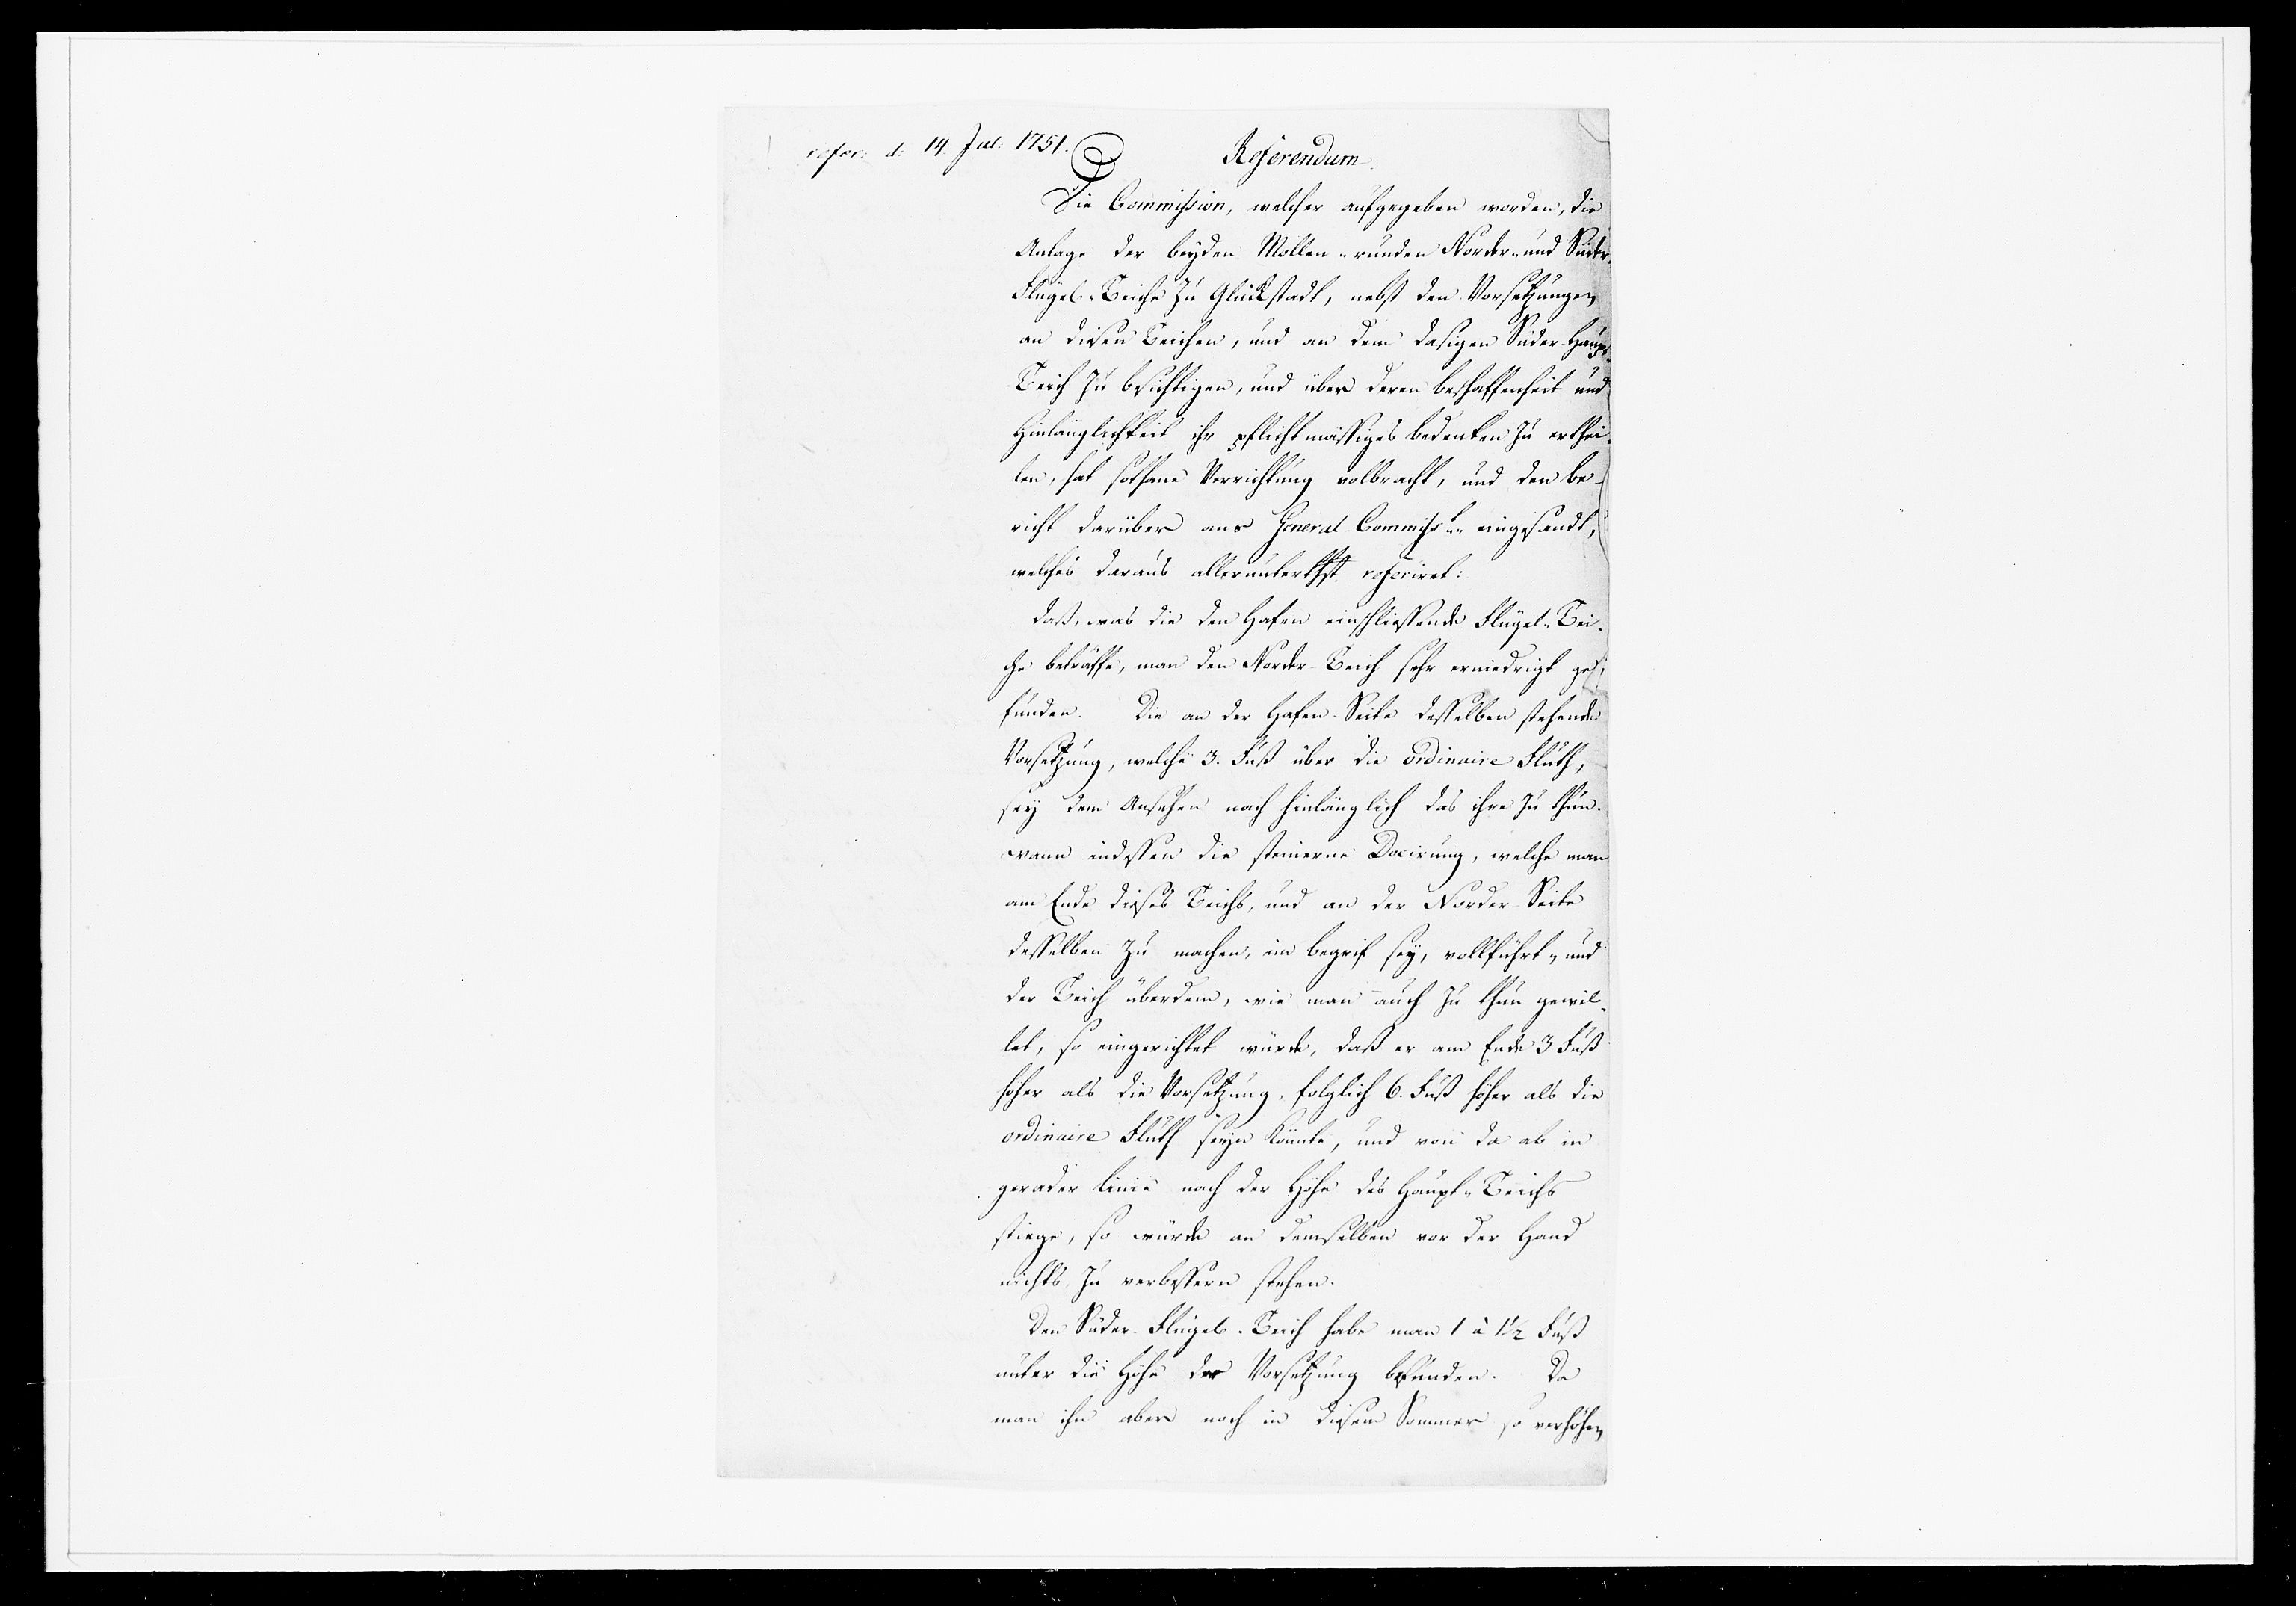 refer: d: 14. Jul: 1751.
Referendum.
Die Commission, welcher aufgegeben worden, die
Anlage der beyden Mollen-runden Norder- und Süder-
Flügel-Teiche zu Glückstadt, nebst den Vorsetzungen
an diesen Teichen, und an dem dasigen Süder-Haupt-
Teich zu besichtigen, und über deren beschaffenheit und
Hinlänglichkeit ihr pflichtmässiges bedenken zu erthei-
len, hat sothane Verrichtung volbracht, und den be-
richt darüber ans General-Commiss: eingesandt,
welches daraus allerunterthst referiret:
daß, was die den Hafen einschliessende Flügel-Tei-
che beträffe, man den Norder-Teich sehr erniedrigt ge-
funden. Die an der Hafen-Seite desselben stehende
Vorsetzung, welche 3. Fuß über die ordinaire Fluth,
sey dem Ansehen nach hinlänglich das ihre zu thun.
wann indessen die steinerne Docirung, welche man
am Ende dieses Teichs, und an der Norder-Seite
desselben zu machen, im begrif sey, vollführt- und
der Teich überdem, wie man auch zu thun gewil-
let, so eingerichtet würde, daß er am Ende 3 Fuß
höher als die Vorsetzung, folglich 6. Fuß höher als die
ordinaire Fluth seyn könnte, und von da ab in
gerader linie nach der Höhe des Haupt-Teichs
stiege, so würde an demselben vor der Hand
nichts zu verbessern stehen.
Den Süder-Flügel-Teich habe man 1 à 1 1/2 Fuß
unter die Höhe der Vorsetzung befunden. Da
man ihn aber noch in diesem Sommer so verhöhen